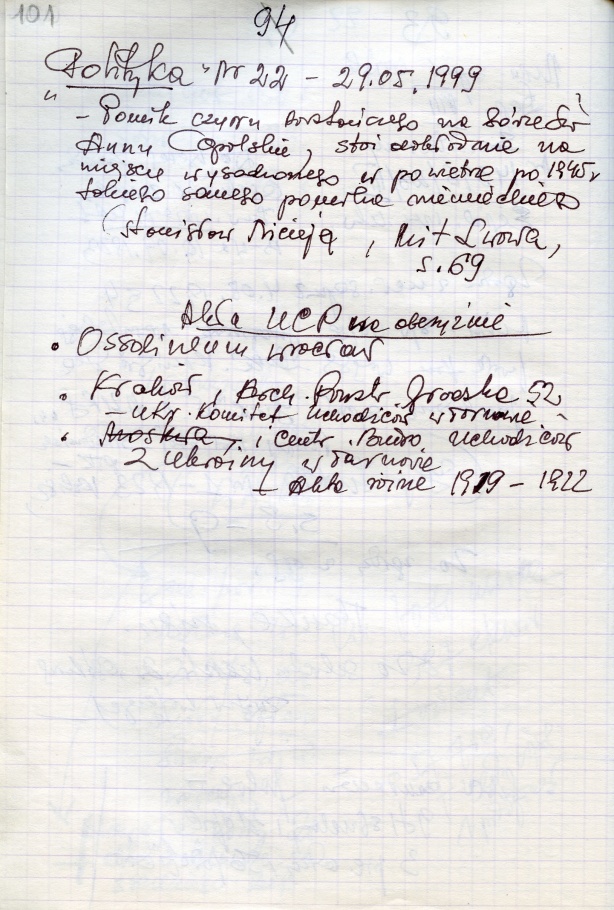 101
94
"Polityka" Nr 22 – 29.05.1999
– Pomnik czynu powstańczego na Górze Św
Anny Opolskie, stoi dokładnie na
miejscu wysadzonego w powietrze po 1945 r
takiego samego pomnika niemieckiego
(Stanisław Nicieja, Mit Lwowa,
s. 69
Akta UCP na obczyźnie
• Ossolineum Wrocław
• Kraków, Arch. Państw. Grodzka 52
– Ukr. Komitet Uchodźców w Tarnowie
• Moskwa, i Centr. Biuro Uchodźców
Z Ukrainy w Tarnowie
– Akta różne 1919 – 1922